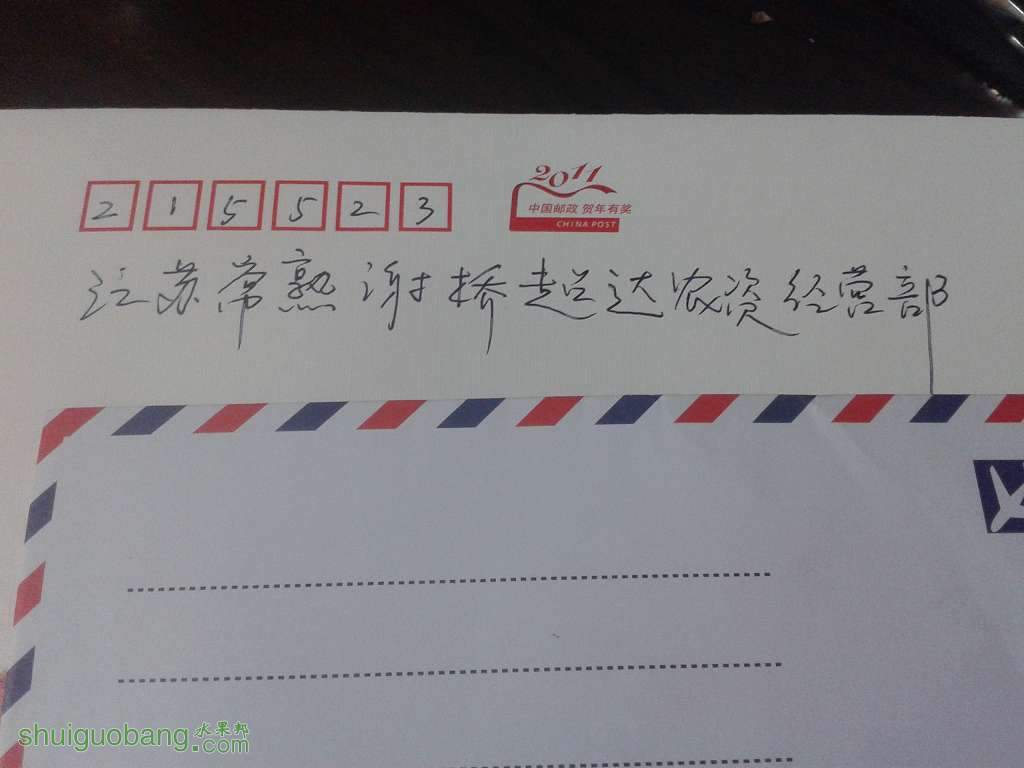 2011
中国邮政 贺年有奖
CHINA POST
215523
江苏常熟谢桥超达农资经营部
shuiguobang.水果邦.com